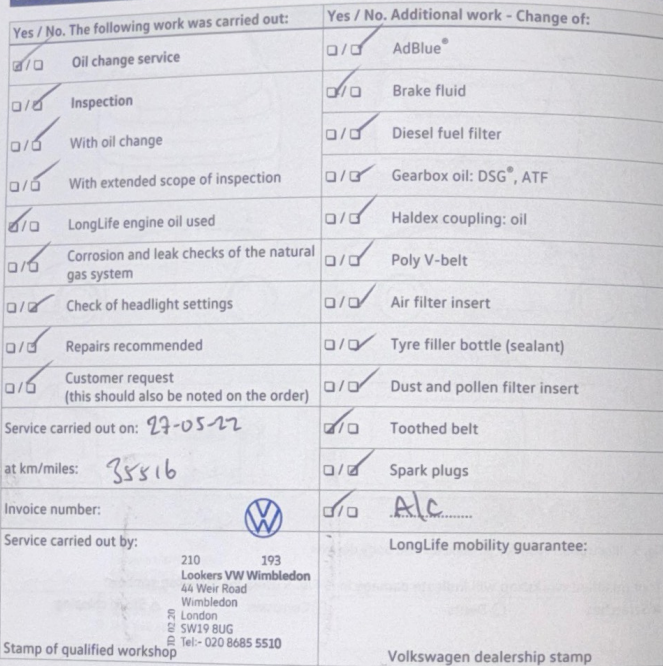 Yes / No. The following work was carried out:
Oil change service
Inspection
With oil change
With extended scope of inspection
LongLife engine oil used
Corrosion and leak checks of the natural
gas system
Check of headlight settings
Repairs recommended
Customer request
(this should also be noted on the order)
Service carried out on: 27-05-22
at km/miles: 35516
Invoice number:
Service carried out by:
210 193
Lookers VW Wimbledon
44 Weir Road
Wimbledon
London
SW19 8UG
Tel:- 020 8685 5510
Stamp of qualified workshop
Yes / No. Additional work - Change of:
AdBlue®
Brake fluid
Diesel fuel filter
Gearbox oil: DSG®, ATF
Haldex coupling: oil
Poly V-belt
Air filter insert
Tyre filler bottle (sealant)
Dust and pollen filter insert
Toothed belt
Spark plugs
A/C
LongLife mobility guarantee:
Volkswagen dealership stamp